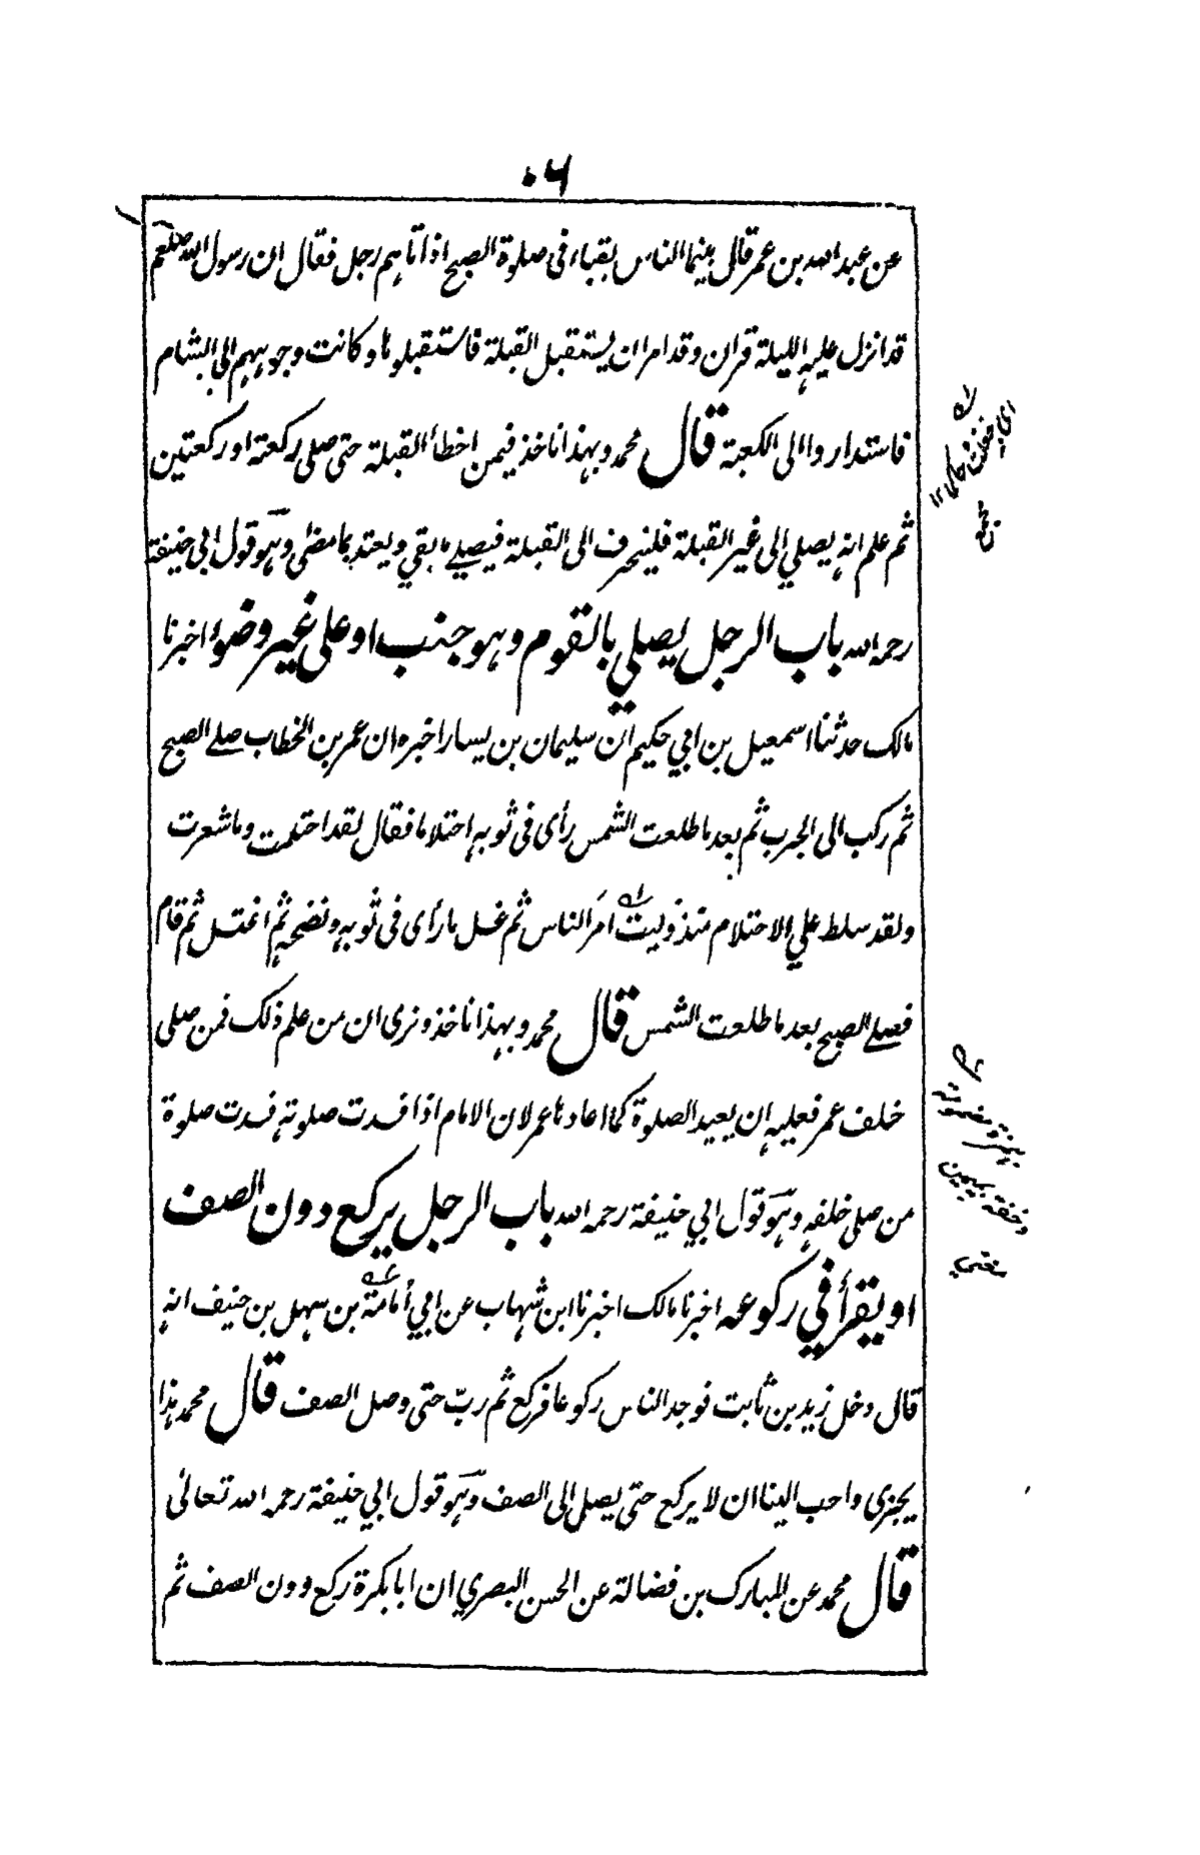 عن عبد الله بن عمر قال بينما الناس بقباء في صلوة الصبح اذ اتاهم رجل فقال ان رسول الله صلعم
قد انزل عليه الليلة قران وقد امر ان يستقبل القبلة فاستقبلوها وكانت وجوههم الى الشام
فاستداروا الى الكعبة قال محمد وبهذا ناخذ فيمن اخطأ القبلة حتى صلى ركعة او ركعتين
ثم علم انه يصلي الى غير القبلة فلينحرف الى القبلة فيصلي ما بقي ويعتد بما مضى وهو قول ابي حنيفة
رحمه الله باب الرجل يصلي بالقوم وهو جنب او على غير وضوء اخبرنا
مالك حدثنا اسمعيل بن ابي حكيم ان سليمان بن يسار اخبره ان عمر بن الخطاب صلى الصبح
ثم ركب الى الجرب ثم بعد ما طلعت الشمس رأى في ثوبه احتلاما فقال لقد احتلمت وما شعرت
ولقد سلط علي الاحتلام منذ وليت امر الناس ثم غسل ما رأى في ثوبه ونضحه ثم اغتسل ثم قام
فصلى الصبح بعد ما طلعت الشمس قال محمد وبهذا ناخذ ونرى ان من علم ذلك فمن صلى
خلف عمر فعليه ان يعيد الصلوة كما اعادها عمر لان الامام اذا فسدت صلوته فسدت صلوة
من صلى خلفه وهو قول ابي حنيفة رحمه الله باب الرجل يركع دون الصف
او يقرأ في ركوعه اخبرنا مالك اخبرنا ابن شهاب عن ابي أمامة بن سهل بن حنيف انه
قال دخل زيد بن ثابت فوجد الناس ركوعا فركع ثم ربّ حتى وصل الصف قال محمد هذا
يجزى واحب الينا ان لا يركع حتى يصل الى الصف وهو قول ابي حنيفة رحمه الله تعالى
قال محمد عن المبارك بن فضالة عن الحسن البصري ان ابا بكرة ركع دون الصف ثم